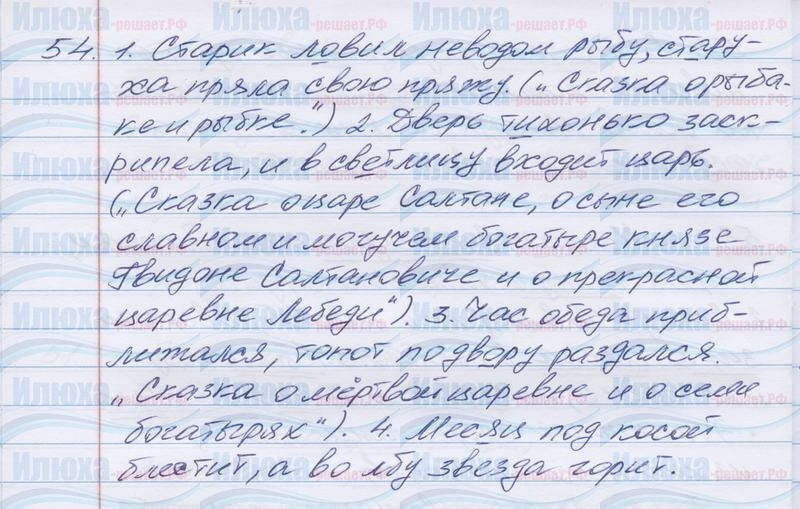 54. 1. Старик ловил неводом рыбу, стару-
ха пряла свою пряжу. („Сказка о рыба-
ке и рыбке".) 2. Дверь тихонько заск-
рипела, и в светлицу входит царь.
(„Сказка о царе Салтане, о сыне его
славном и могучем богатыре князе
Гвидоне Салтановиче и о прекрасной
царевне Лебеди"). 3. Час обеда приб-
лижался, топот по двору раздался.
„Сказка о мёртвой царевне и о семи
богатырях"). 4. Месяц под косой
блестит, а во лбу звезда горит.